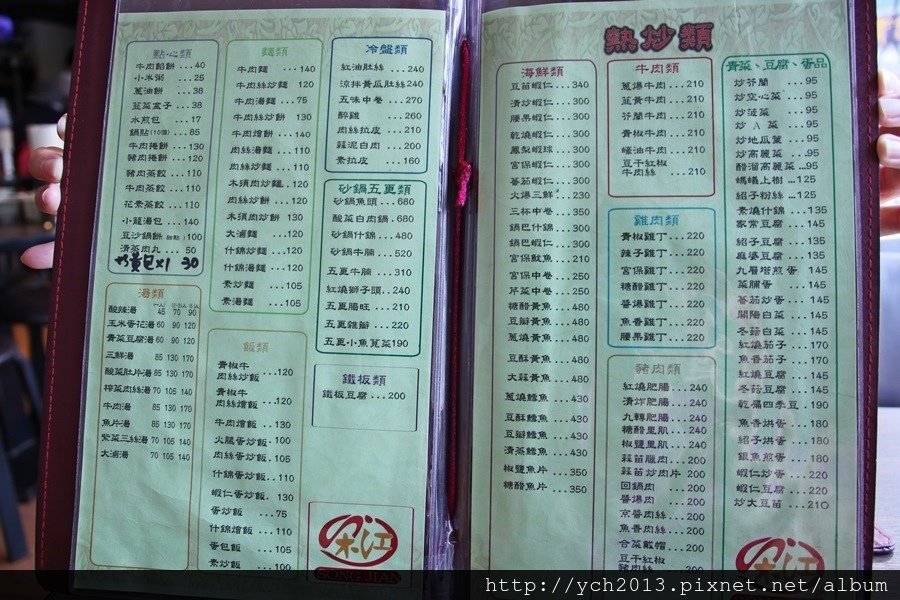 點心類
牛肉餡餅...40
小米粥...25
蔥油餅...38
韮菜盒子...38
水煎包...17
鍋貼(10個)...85
牛肉捲餅...130
豬肉捲餅...120
豬肉蒸餃...110
牛肉蒸餃...110
花素蒸餃...110
小籠湯包...140
豆沙鍋餅...100
清蒸肉丸...50
奶黃包x1 30
湯類
酸辣湯 45 70 90
玉米蛋花湯 60 90 120
青菜豆腐湯 60 90 120
三鮮湯 85 130 170
酸菜肚片湯 85 130 170
榨菜肉絲湯 70 105 140
牛肉湯 85 130 170
魚片湯 85 130 170
紫菜三絲湯 70 105 140
大滷湯 70 105 140
麵類
牛肉麵...140
牛肉絲炒麵 120
牛肉湯麵...75
牛肉絲炒餅 130
牛肉燴餅...140
肉絲湯麵...110
肉絲炒麵...110
木須肉炒麵..120
肉絲炒餅...120
木須肉炒餅 130
大滷麵...120
什錦炒麵...120
什錦湯麵...120
素炒麵...105
素湯麵...105
飯類
青椒牛
肉絲炒飯...120
青椒牛
肉絲燴飯...120
牛肉燴飯...130
火腿蛋炒飯.100
肉絲蛋炒飯.105
什錦蛋炒飯..110
蝦仁蛋炒飯.130
蛋炒飯...75
什錦燴飯...110
蛋包飯...105
素炒飯...100
冷盤類
紅油肚絲...240
涼拌黃瓜肚絲240
五味中卷...270
醉雞...260
肉絲拉皮...210
蒜泥白肉...200
素拉皮...160
砂鍋五更類
砂鍋魚頭...680
酸菜白肉鍋..680
砂鍋什錦...480
砂鍋牛腩...520
五更牛腩...310
紅燒獅子頭..240
五更腸旺...210
五更雞瓣...220
五更小魚莧菜190
鐵板類
鐵板豆腐...200
宋江
SONG JIAN
熱炒類
海鮮類
豆苗蝦仁...340
清炒蝦仁...300
腰果蝦仁...300
乾燒蝦仁...300
鳳梨蝦球...300
宮保蝦仁...300
番茄蝦仁...300
火爆三鮮...230
三杯中卷...350
鍋巴什錦...300
鍋巴蝦仁...300
宮保魷魚...210
宮保中卷...250
芹菜中卷...250
糖醋黃魚...480
豆瓣黃魚...480
蔥燒黃魚...480
豆酥黃魚...480
大蒜黃魚...480
蔥燒鱈魚...430
豆酥鱈魚...430
豆瓣鱈魚...430
清蒸鱈魚...430
椒鹽魚片...350
糖醋魚片...350
牛肉類
蔥爆牛肉...210
韮黃牛肉...210
芥蘭牛肉...210
青椒牛肉...210
蠔油牛肉...210
豆干紅椒
牛肉絲...210
雞肉類
青椒雞丁...220
辣子雞丁...220
宮保雞丁...220
糖醋雞丁...220
醬爆雞丁...220
魚香雞丁...220
腰果雞丁...220
豬肉類
紅燒肥腸...240
清炸肥腸...240
九轉肥腸...240
糖醋里肌...240
椒鹽里肌...240
蒜苗臘肉...200
蒜苗炒肉片 200
回鍋肉...200
醬爆肉...200
京醬肉絲...200
魚香肉絲...200
合菜戴帽...200
豆干紅椒
豬肉絲...200
青菜、豆腐、蛋品
炒芥蘭...95
炒空心菜...95
炒菠菜...95
炒A菜...95
炒地瓜葉...95
炒高麗菜...95
醋溜高麗菜...95
螞蟻上樹...125
紹子粉絲...125
素燒什錦...135
家常豆腐...145
紹子豆腐...145
麻婆豆腐...145
九層塔煎蛋 145
菜脯蛋...145
番茄炒蛋...145
開陽白菜...145
冬菇白菜...145
紅燒茄子...170
魚香茄子...170
紅燒豆腐...145
冬菇豆腐...145
乾煸四季豆..190
魚香烘蛋...180
紹子烘蛋...180
銀魚煎蛋...180
蝦仁炒蛋...220
蝦仁豆腐...220
炒大豆苗...210
http://ych2013.pixnet.net/album